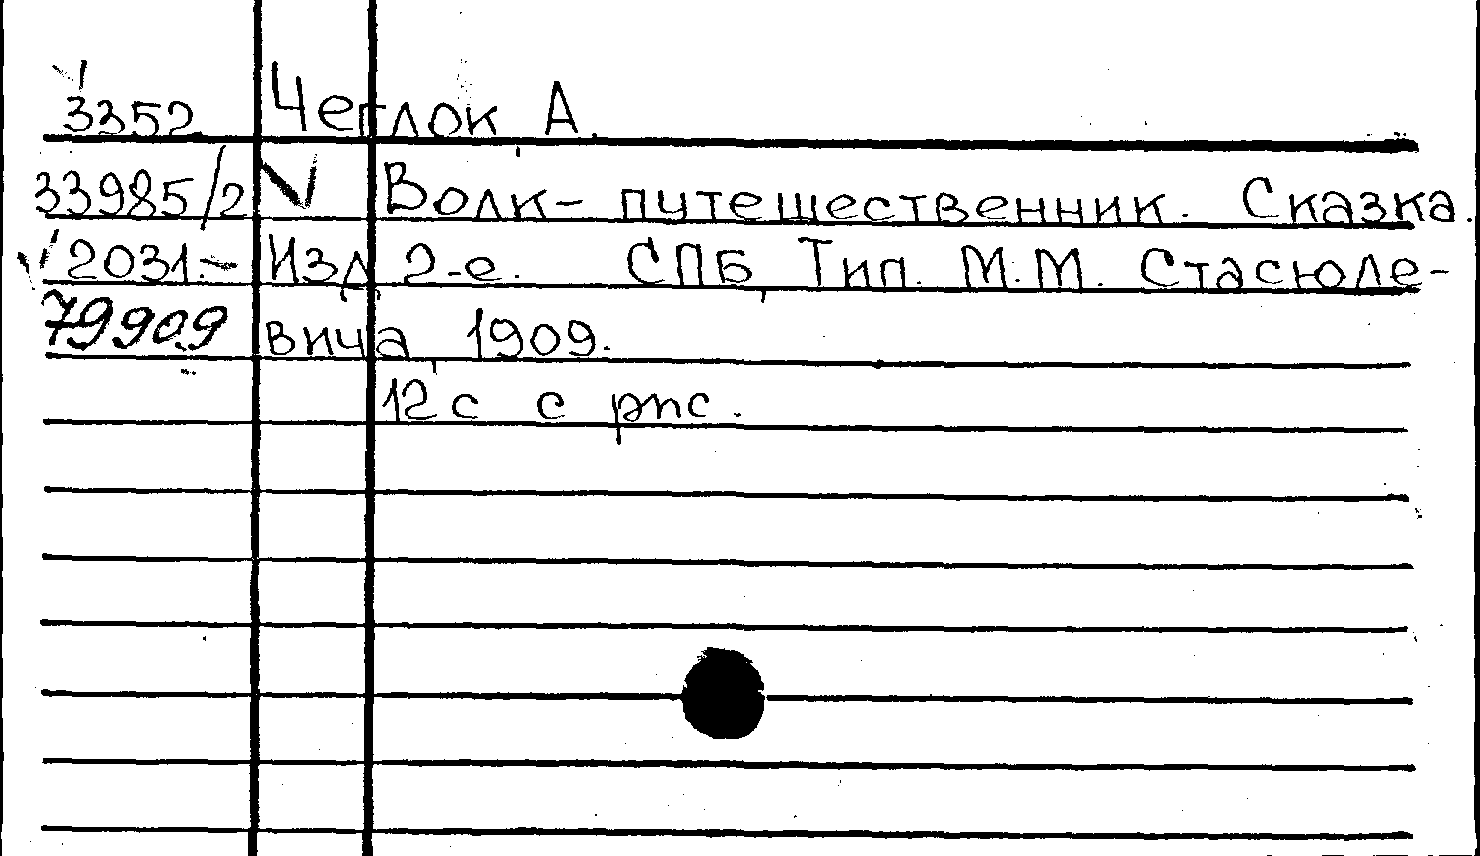 3352 Чеглок, А.
33985/2 V Волк-путешественник. Сказка.
V 2031.- Изд. 2-е. СПБ, Тип. М.М. Стасюле-
79909 вича, 1909.
12 с с рис.